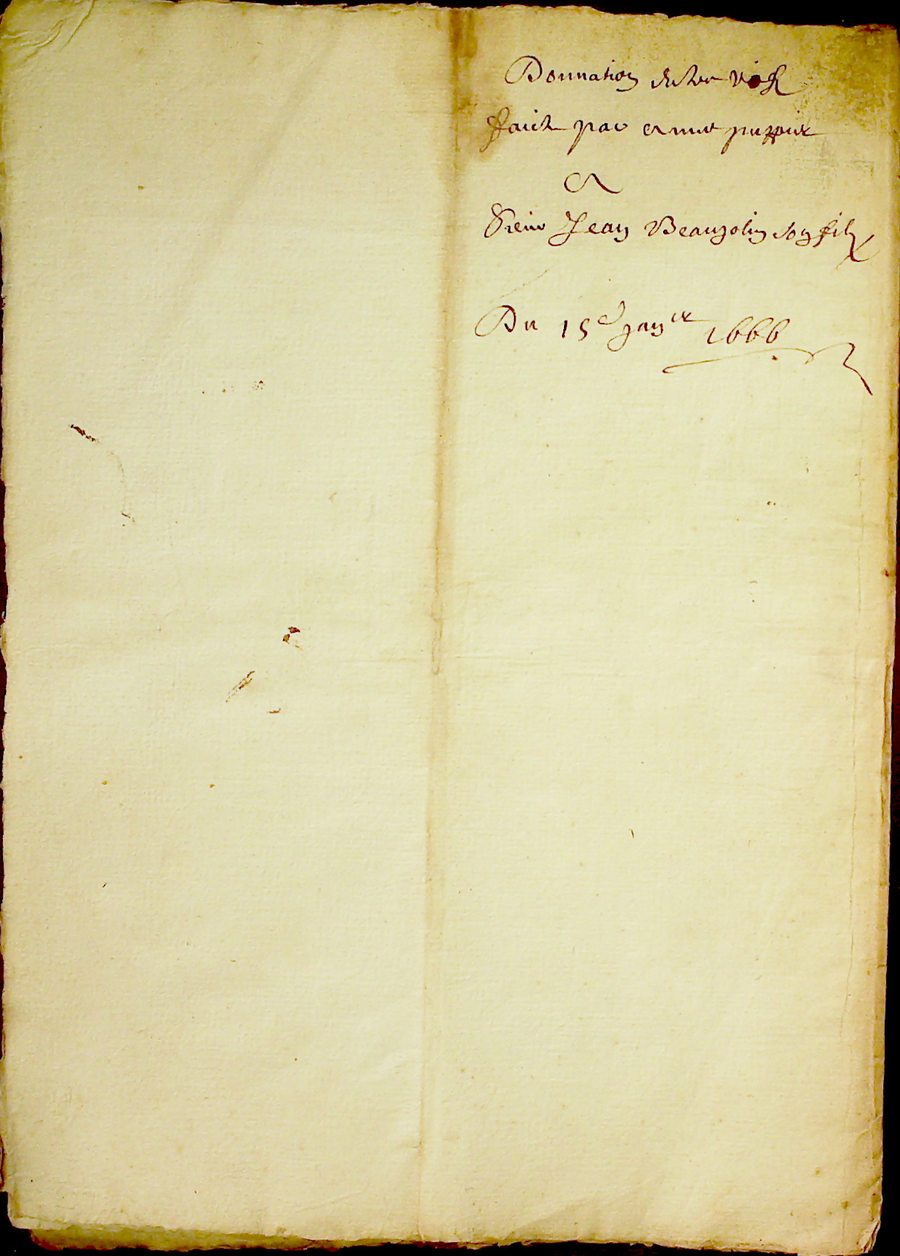 Donnation entre vifz
faicte par
A
Sieur Jean Beaujolin son filz
Du 15e janer 1666